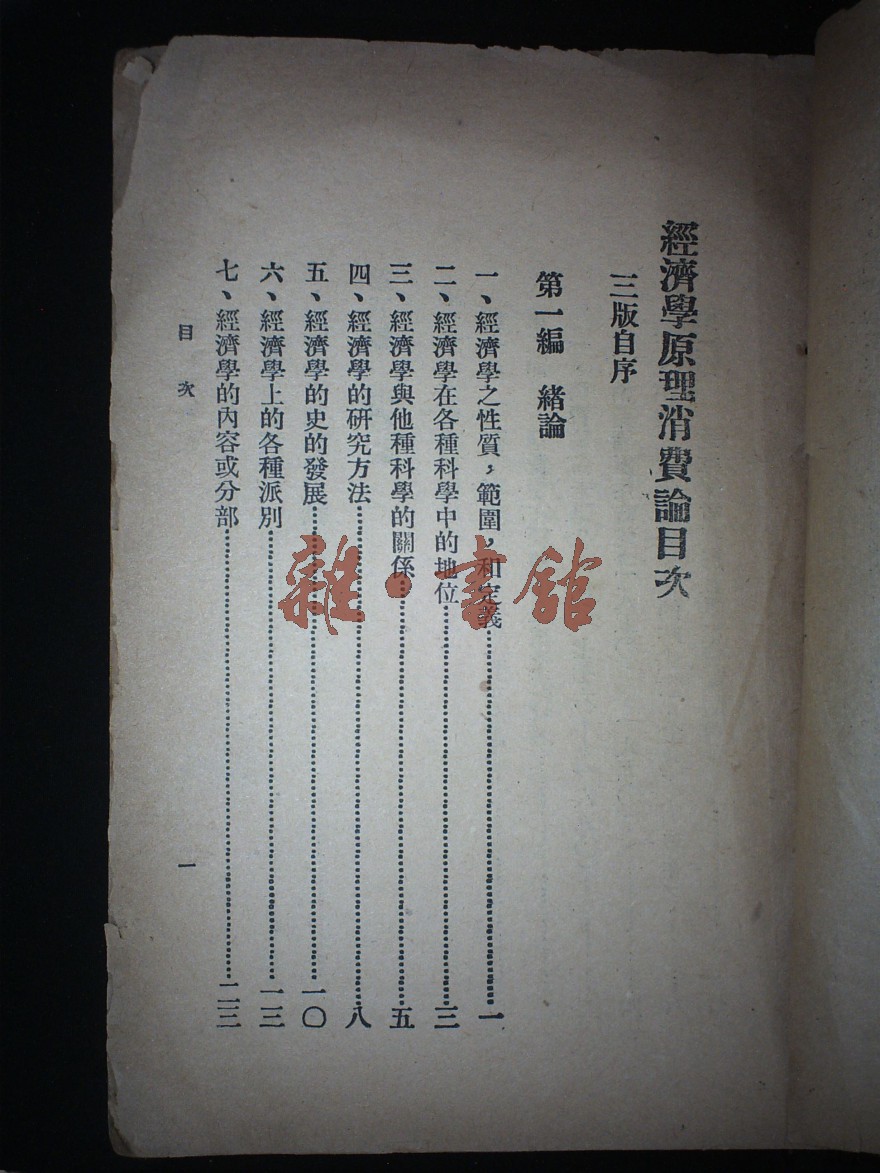 經濟學原理消費論目次
三版自序
第一編　緒論
一、經濟學之性質，範圍，和定義……一
二、經濟學在各種科學中的地位……三
三、經濟學與他種科學的關係……五
四、經濟學的研究方法……八
五、經濟學的史的發展……一〇
六、經濟學上的各種派別……一三
七、經濟學的內容或分部……二三
目次
一
雜·書館